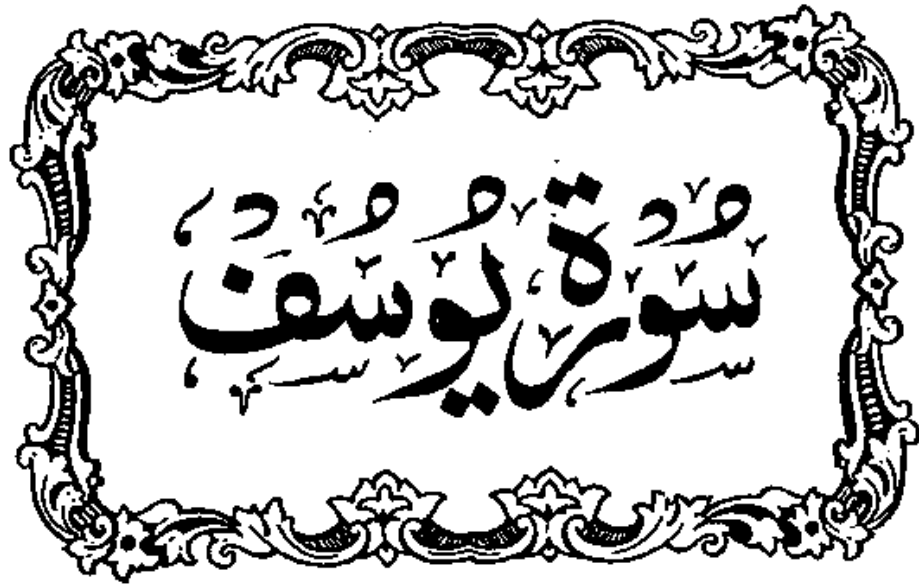 سُورَة يُوسُف